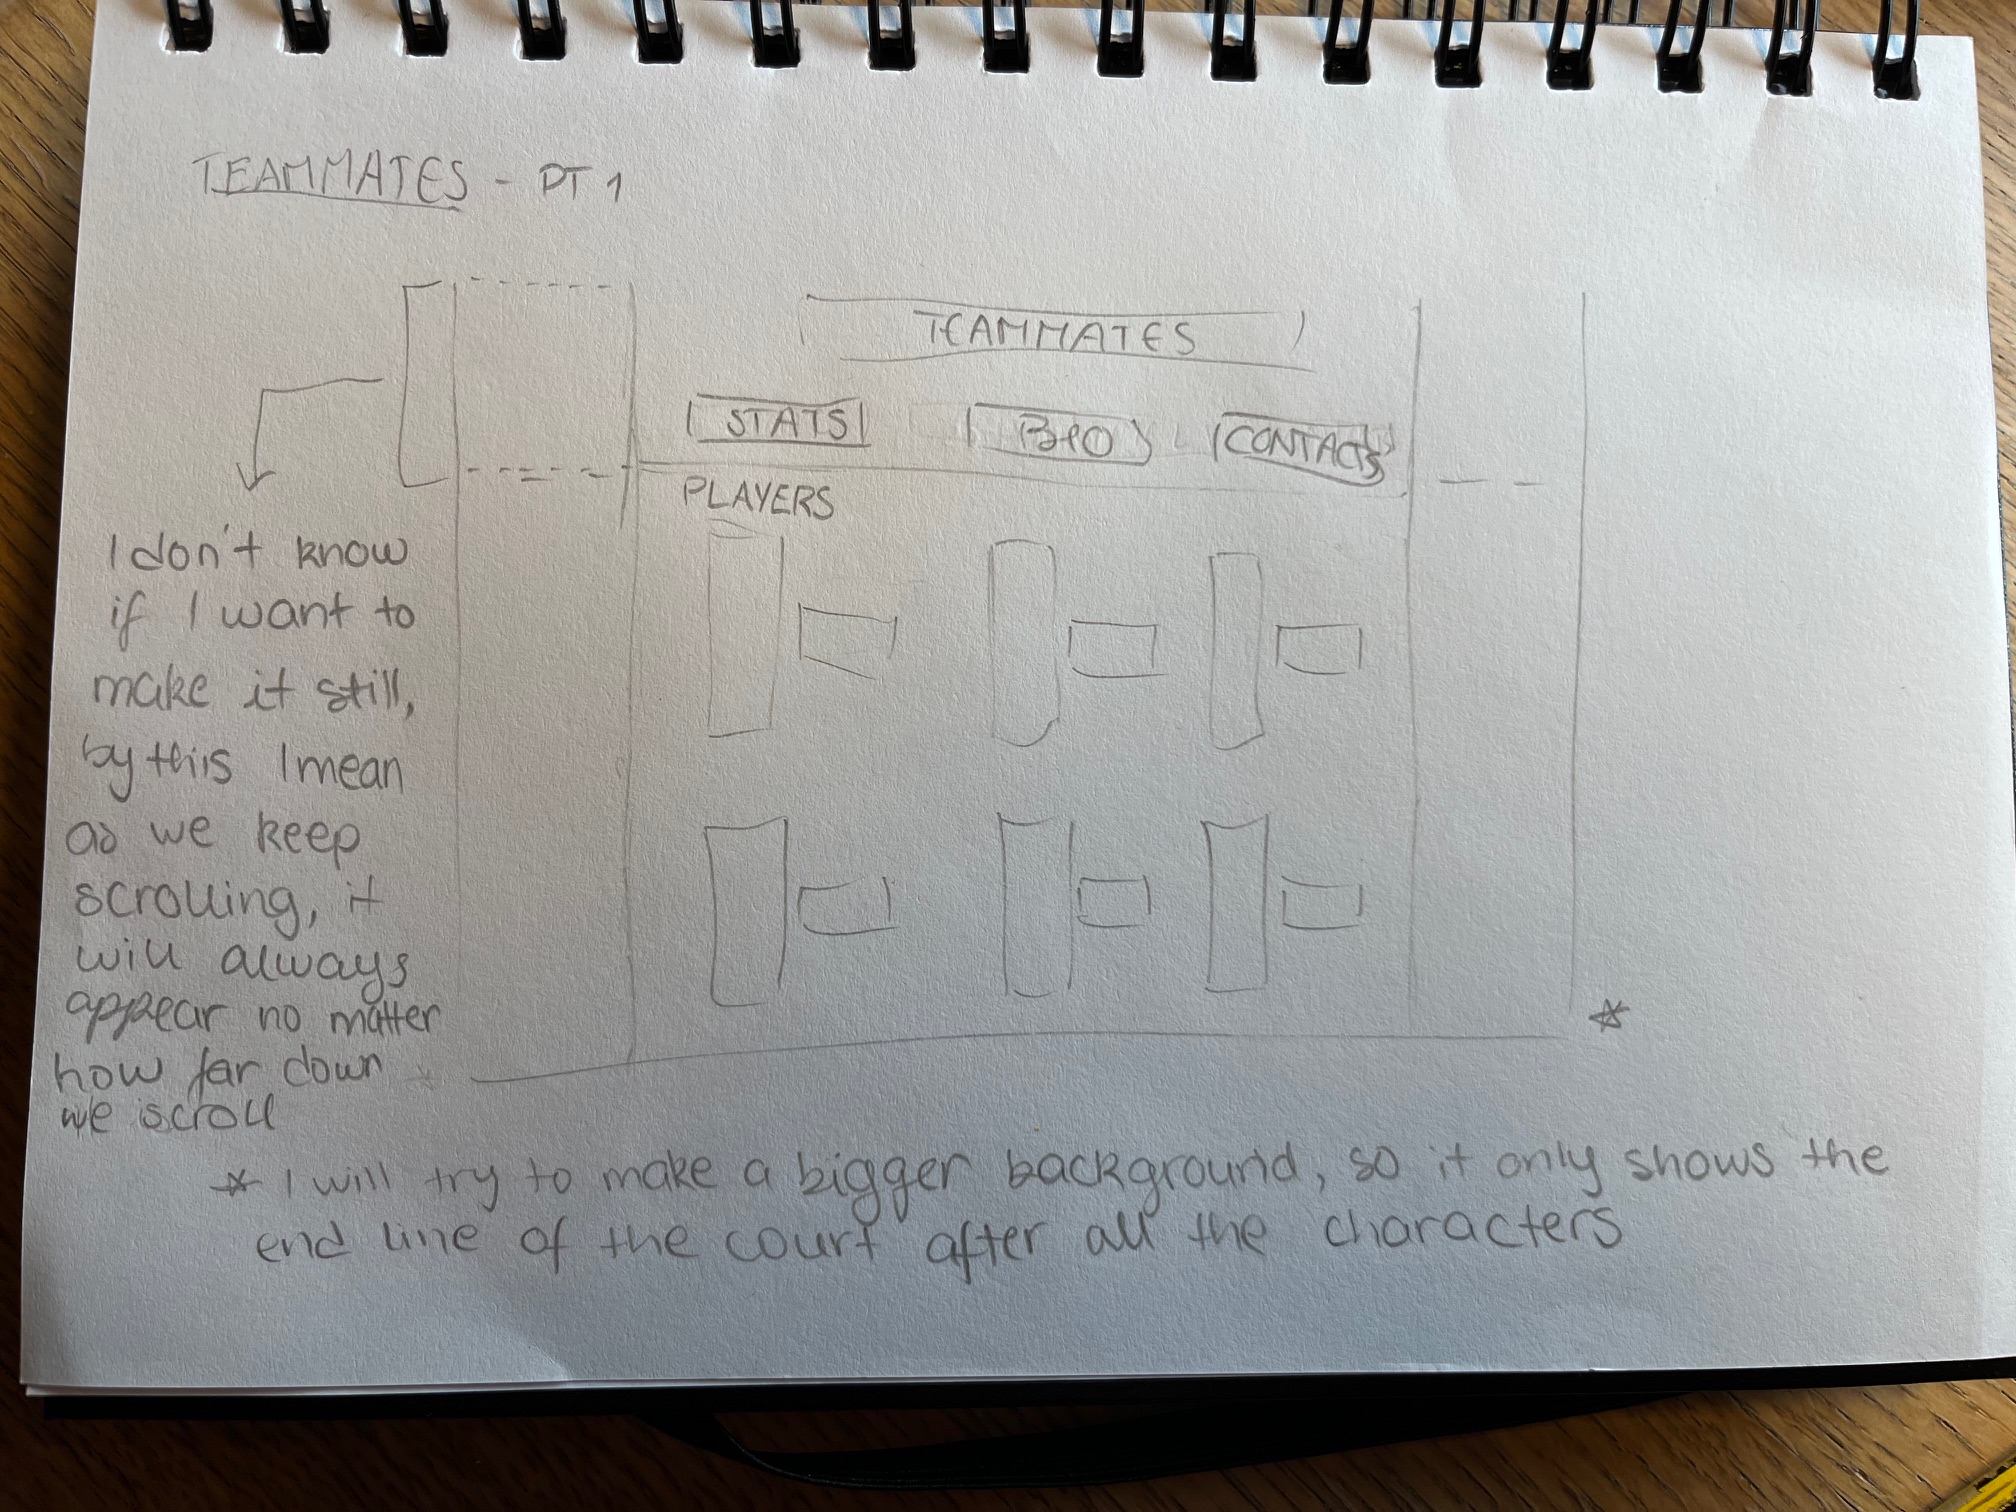 TEAMMATES - PT 1
TEAMMATES
STATS
BIO
CONTACTS
PLAYERS
I don't know
if I want to
make it still,
by this I mean
as we keep
scrolling, it
will always
appear no matter
how far down
we scroll
* I will try to make a bigger background, so it only shows the
end line of the court after all the characters